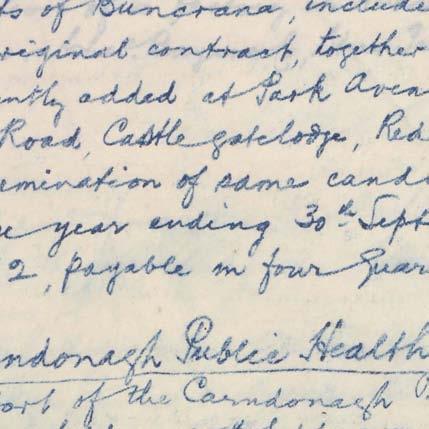 ts of Buncrana, include
riginal contract, together
ently added at Park Aven
Road, Castle gatelodge, Red
emination of same candl
e year ending 30th Sept
2, payable in four Quar
ndonagh Public Health
ort of the Carndonagh P